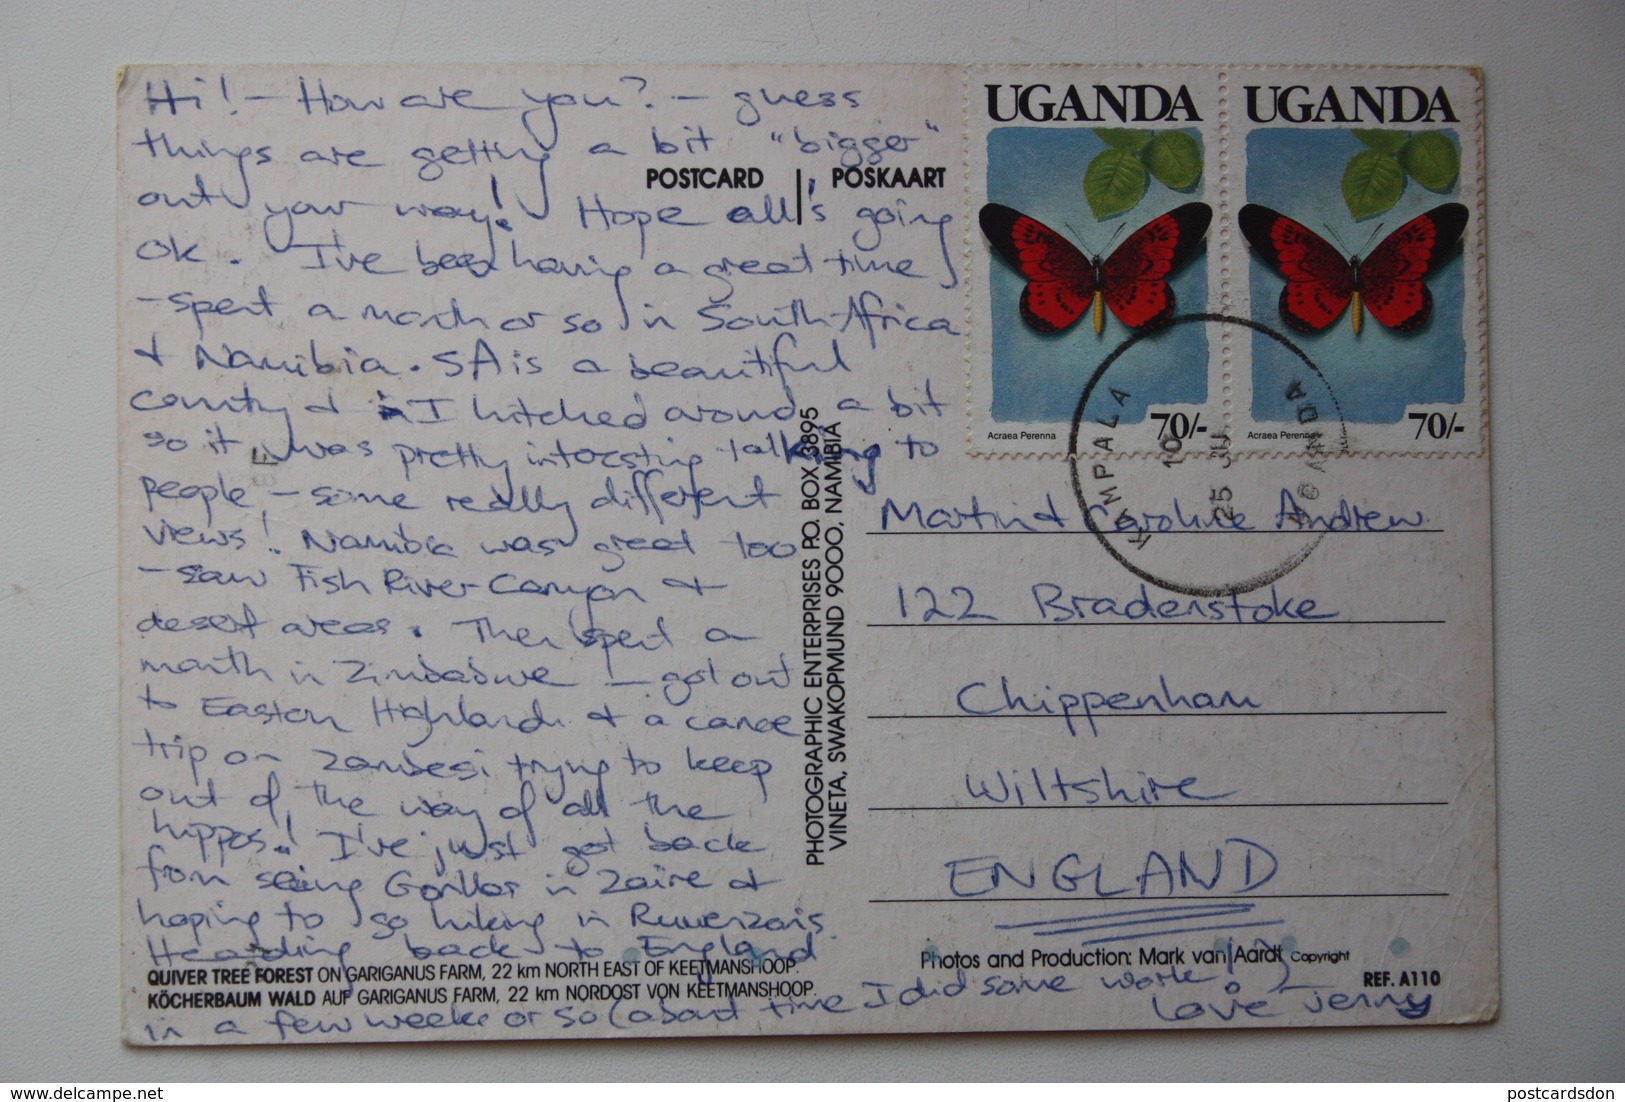 Hi! - How are you? - guess
things are getting a bit "bigger"
out your way! Hope all's going
OK. I've been having a great time
- spent a month or so in South Africa
+ Namibia. SA is a beautiful
country + I hitched around a bit
so it was pretty interesting talking to
people - some really different
views! Namibia was great too
- saw Fish River Canyon +
desert areas. Then spent a
month in Zimbabwe - got out
to Eastern Highlands + a canoe
trip on Zambesi trying to keep
out of the way of all the
hippos! I've just got back
from seeing Gorillas in Zaire +
hoping to go hiking in Ruwenzoris.
Heading back to England
in a few weeks or so (about time I did some work!)
Love Jenny
POSTCARD POSKAART
PHOTOGRAPHIC ENTERPRISES P.O. BOX 3895
VINETA, SWAKOPMUND 9000, NAMIBIA
UGANDA
Acraea Perenna 70/-
UGANDA
Acraea Perenna 70/-
KAMPALA
10
25 JU
UGANDA
Martin + Caroline Andrew
122 Bradenstoke
Chippenham
Wiltshire
ENGLAND
QUIVER TREE FOREST ON GARIGANUS FARM, 22 km NORTH EAST OF KEETMANSHOOP.
KÖCHERBAUM WALD AUF GARIGANUS FARM, 22 km NORDOST VON KEETMANSHOOP.
Photos and Production: Mark van Aardt Copyright
REF. A110
delcampe.net
postcardsdon